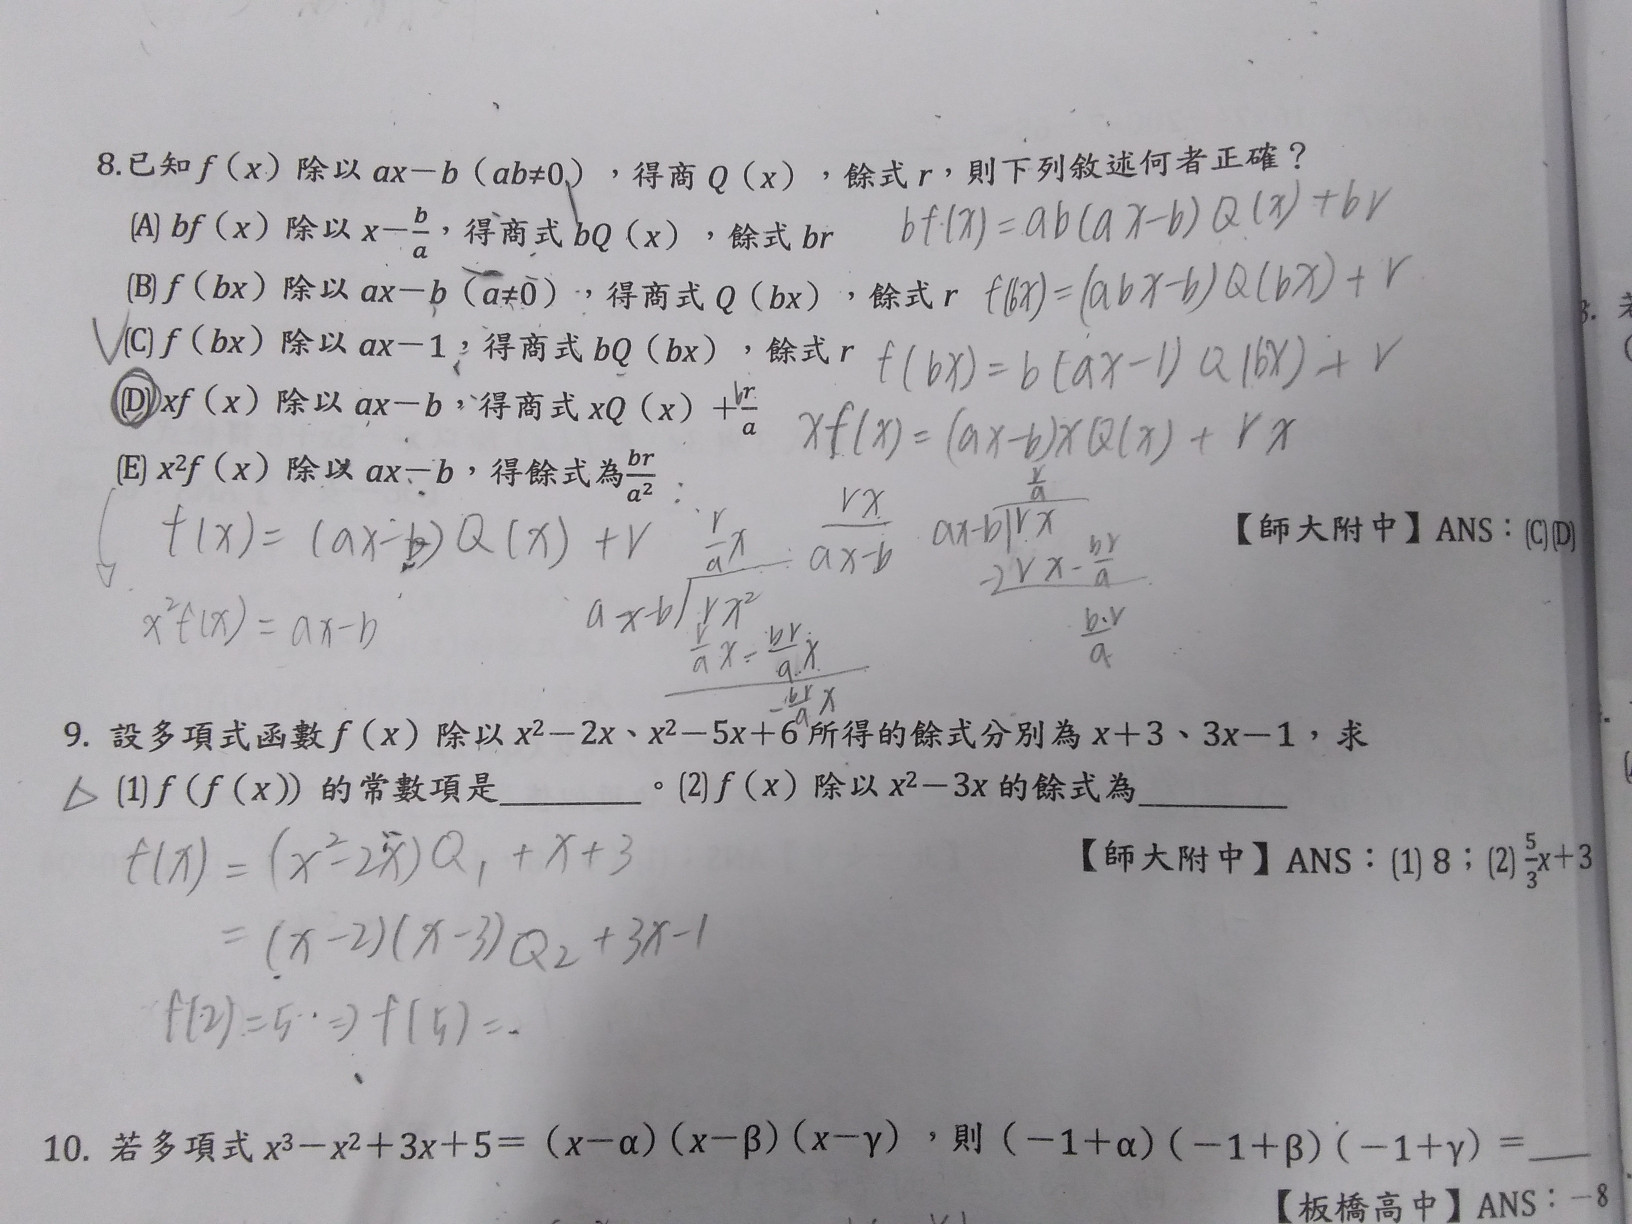 8.已知 f（x）除以 ax－b（ab≠0），得商 Q（x），餘式 r，則下列敘述何者正確？
(A) bf（x）除以 x－b/a，得商式 bQ（x），餘式 br
bf(x)=ab(ax-b)Q(x)+br
(B) f（bx）除以 ax－b（a≠0），得商式 Q（bx），餘式 r
f(bx)=(abx-b)Q(bx)+r
(C) f（bx）除以 ax－1，得商式 bQ（bx），餘式 r
f(bx)=b(ax-1)Q(bx)+r
(D) xf（x）除以 ax－b，得商式 xQ（x）＋r/a
xf(x)=(ax-b)xQ(x)+rx
(E) x²f（x）除以 ax－b，得餘式為 br/a²
【師大附中】ANS：(C)(D)
f(x)=(ax-b)Q(x)+r
r/a x
rx/ax-b
r/a
ax-b rx
rx-br/a
b·r/a
x²f(x)=ax-b
ax-b rx²
r/a x-br/a x
-br/a x
9. 設多項式函數 f（x）除以 x²－2x、x²－5x＋6 所得的餘式分別為 x＋3、3x－1，求
(1) f（f（x））的常數項是________。(2) f（x）除以 x²－3x 的餘式為________
【師大附中】ANS：(1) 8；(2) 5/3x＋3
f(x)=(x²-2x)Q₁+x+3
=(x-2)(x-3)Q₂+3x-1
f(2)=5⇒f(5)=
10. 若多項式 x³－x²＋3x＋5＝（x－α）（x－β）（x－γ），則（－1＋α）（－1＋β）（－1＋γ）＝___
【板橋高中】ANS：－8